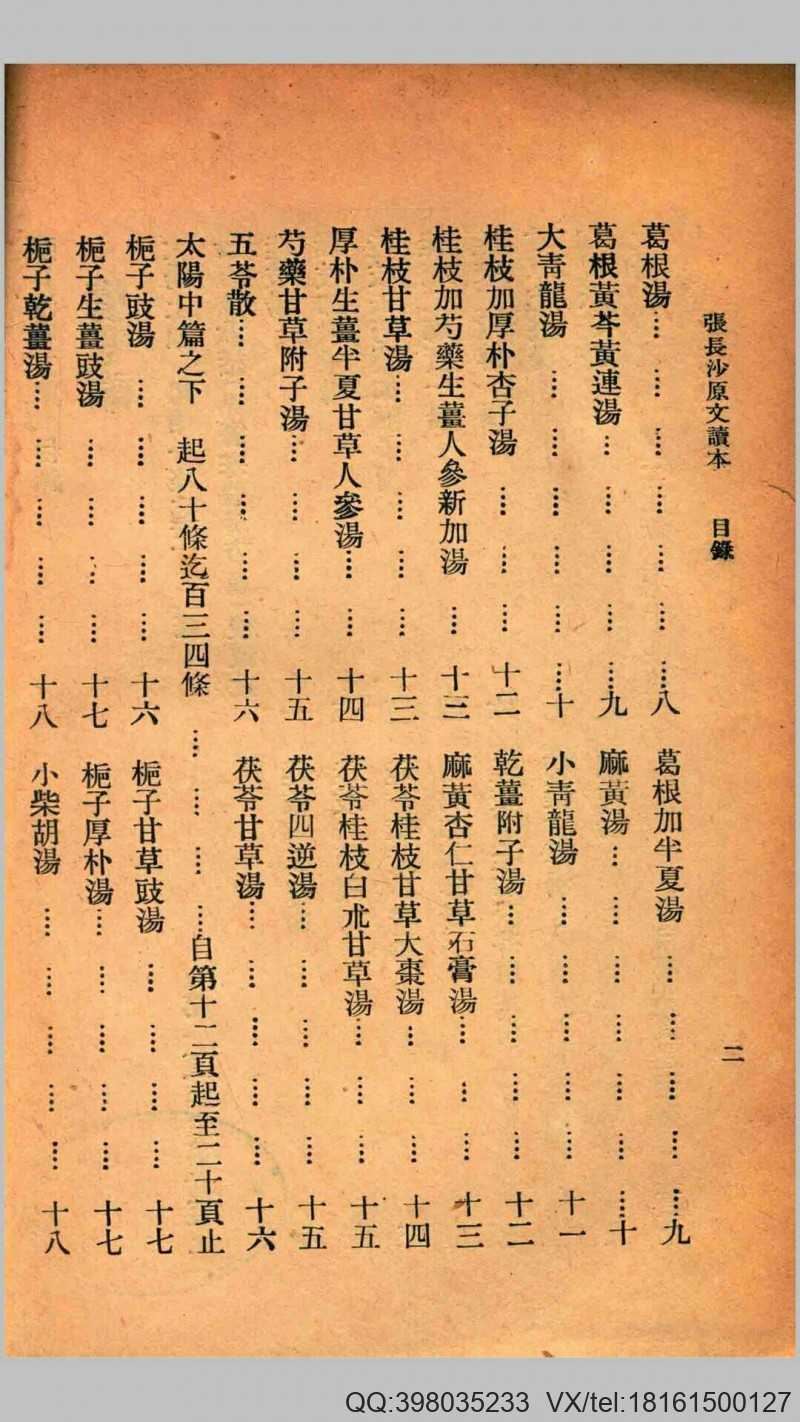 張長沙原文讀本　目錄　二
葛根湯…………………八　葛根加半夏湯…………………九
葛根黃芩黃連湯…………………九　麻黃湯…………………十
大靑龍湯…………………十　小靑龍湯…………………十一
桂枝加厚朴杏子湯…………………十二　乾薑附子湯…………………十二
桂枝加芍藥生薑人參新加湯……十三　麻黃杏仁甘草石膏湯…………………十三
桂枝甘草湯…………………十三　茯苓桂枝甘草大棗湯…………………十四
厚朴生薑半夏甘草人參湯…………………十四　茯苓桂枝白朮甘草湯…………………十五
芍藥甘草附子湯…………………十五　茯苓四逆湯…………………十五
五苓散…………………十六　茯苓甘草湯…………………十六
太陽中篇之下　起八十條迄百三四條…………………自第十二頁起至二十頁止
梔子豉湯…………………十六　梔子甘草豉湯…………………十七
梔子生薑豉湯…………………十七　梔子厚朴湯…………………十七
梔子乾薑湯…………………十八　小柴胡湯…………………十八
QQ:398035233 VX/tel:18161500127